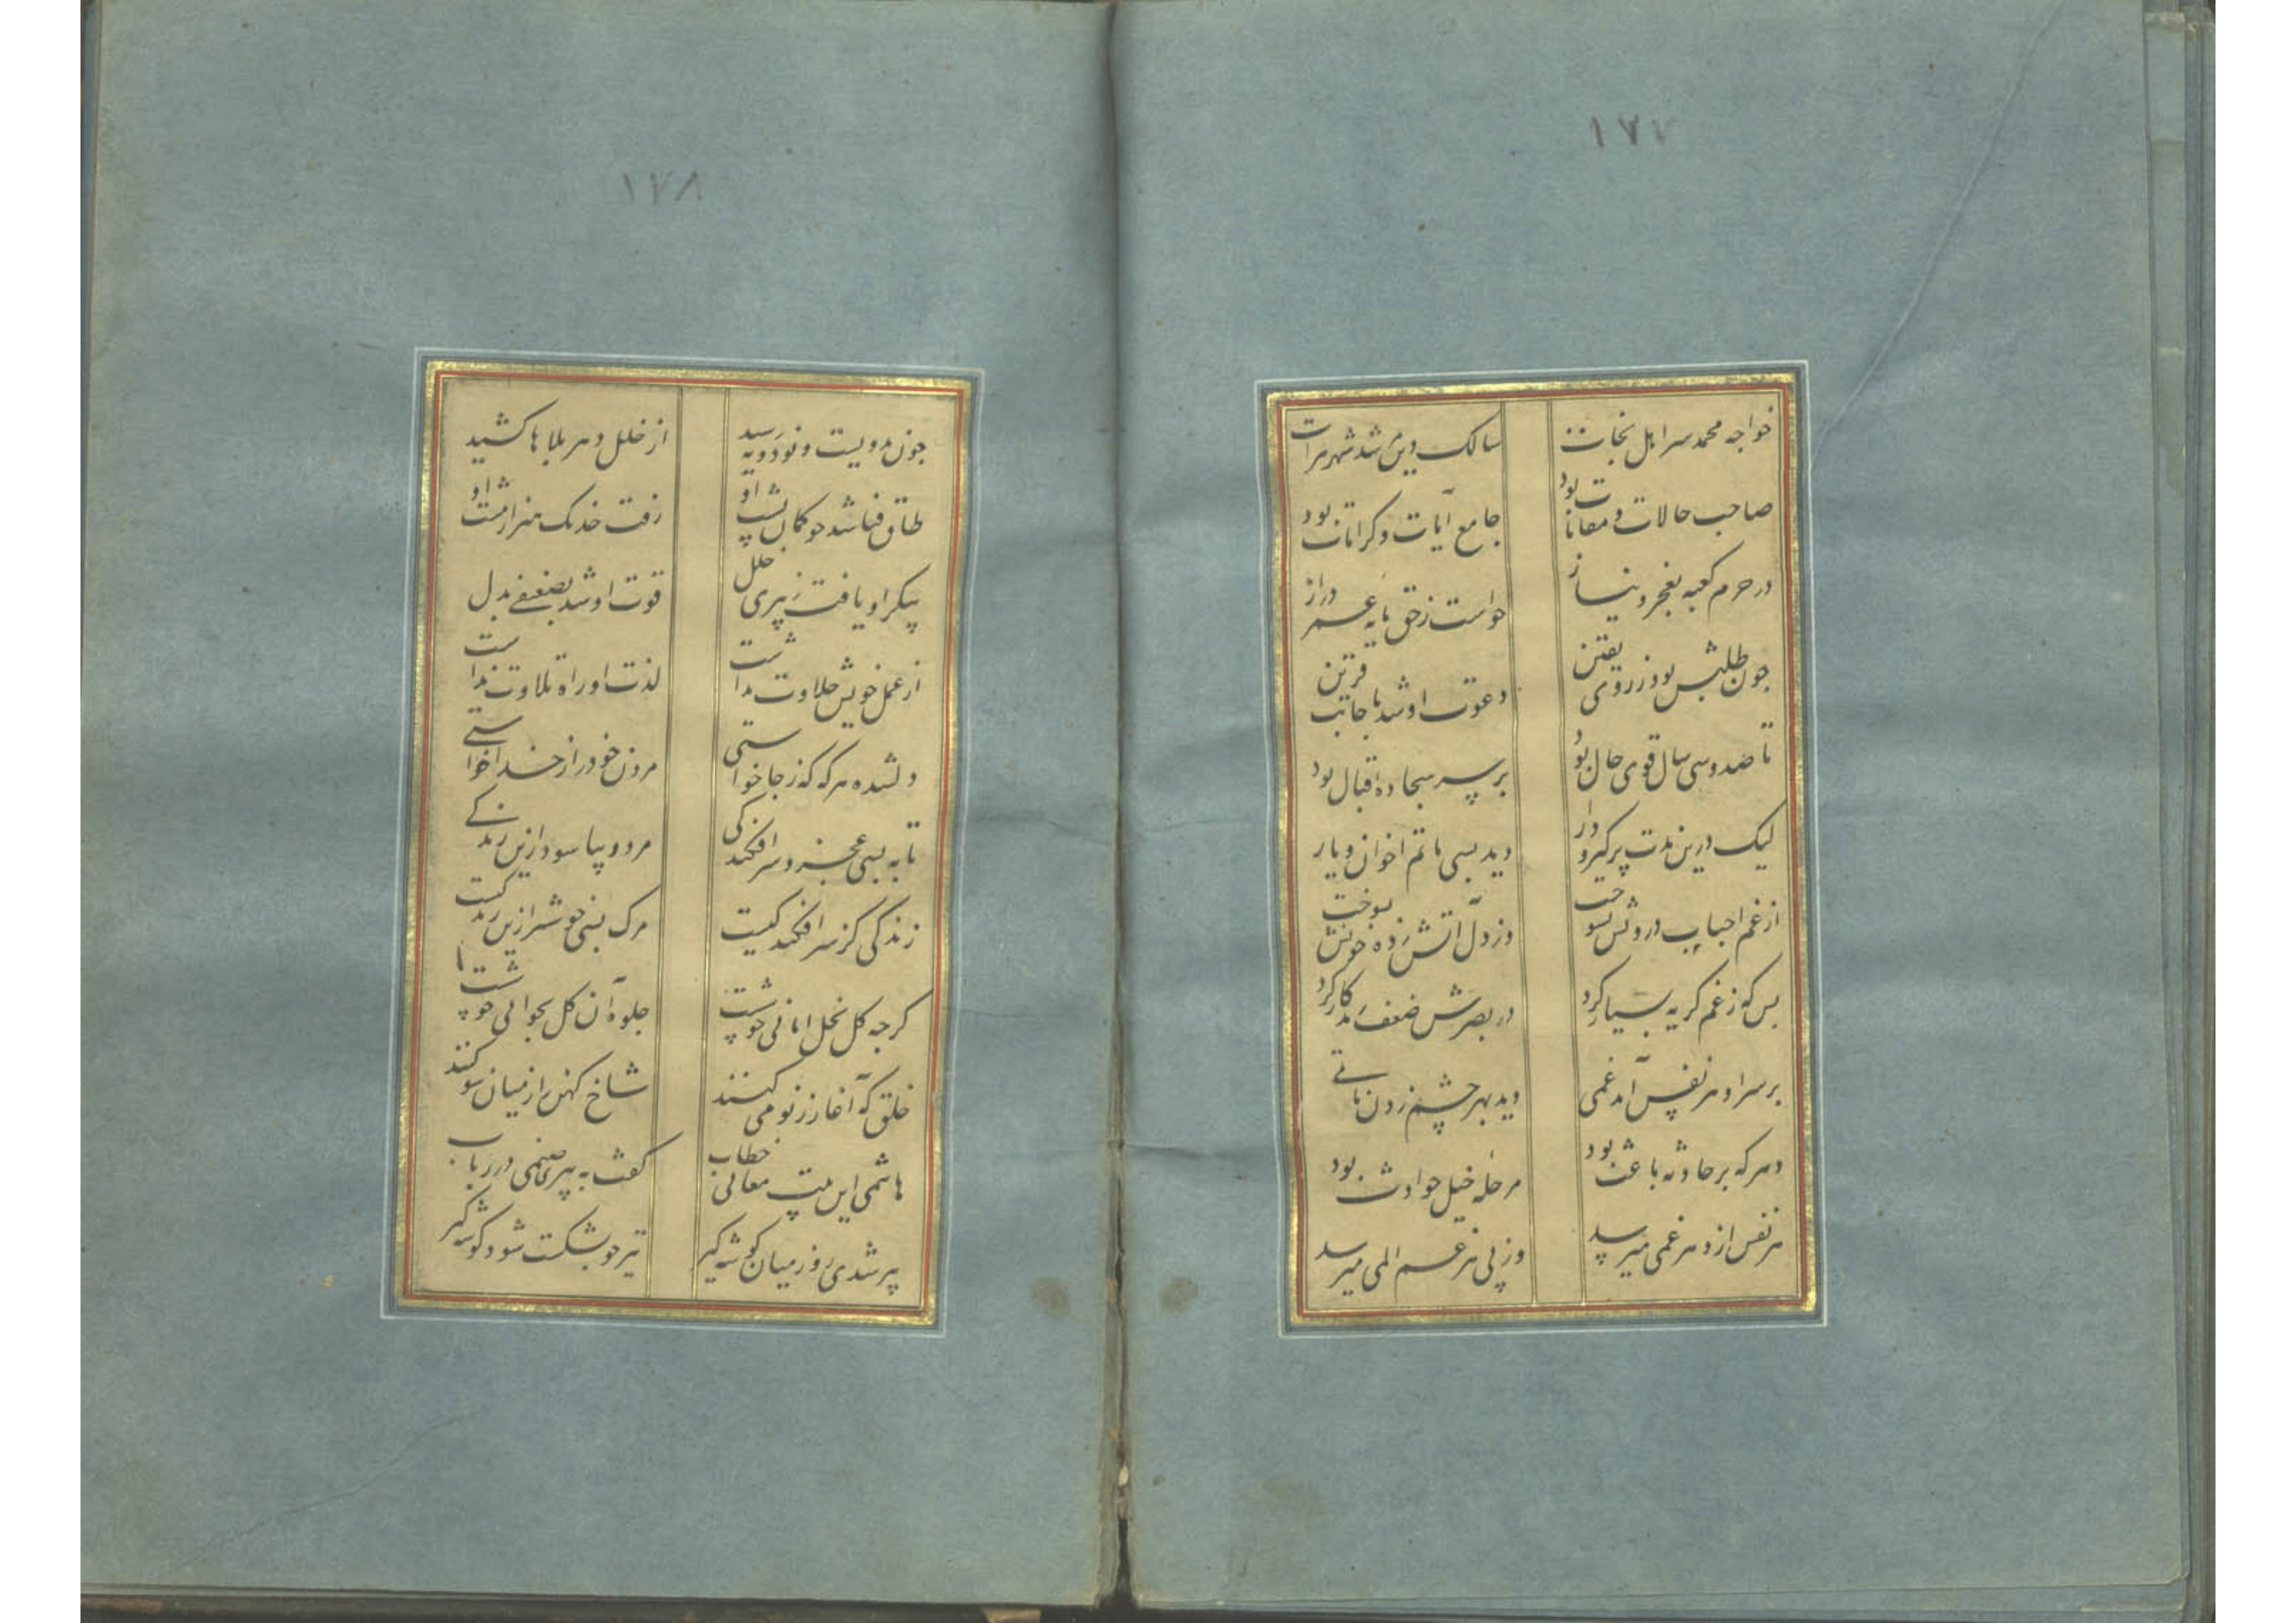 خواجه محمد سر اهل نجات سالک دین شد شهر هرات
صاحب حالات و مقامات بود جامع آیات و کرامات بود
در حرم کعبه بعجز و نیاز خواست ز حق مایه عمر دراز
چون طلبش بود ز روی یقین دعوت او شد باجابت قرین
تا صد و سی سال قوی حال بود بر سر سجاده اقبال بود
لیک درین مدت پر گیر و دار دید بسی ماتم اخوان و یار
از غم احباب درونش بسوخت وز دل آتش زده خونش بسوخت
بس که ز غم گریه بسیار کرد در بصرش ضعف کار کرد
بر سر او هر نفس آمد غمی دید بهر چشم زدن ماتمی
دهر که بر حادثه باعث بود مرحله خیل حوادث بود
هر نفس از دهر غمی میرسد وز پی هر غم المی میرسد
١٧٨
چون بدویست و نود و نه رسید از خلل دهر بلاها کشید
طاق فنا شد چو کمان پشت او رفت خدنک هنر از مشت او
پیکر او یافت ز پیری خلل قوت او شد بضعیفی بدل
از عمل خویش حلاوت نداشت لذت اوراد و تلاوت نداشت
دلشده هر که که ز جا خواستی مردن خود را ز خدا خواستی
تا به بسی عجز و سرافکندکی مرد و بیاسود ازین زندکی
زندکی کز سر افکندکیست مرک بسی خوشتر ازین زندکیست
کرچه کل نخل امانی خوشست جلوه آن کل بجوانی خوشست
خلق که آغاز ز نو می کنند شاخ کهن را ز میان سو کنند
هاشمی این بیت معانی خطاب کفت به پیری صنمی در رباب
پیر شدی رو ز میان کوشه کیر تیر چو بشکست شود کوشه کیر